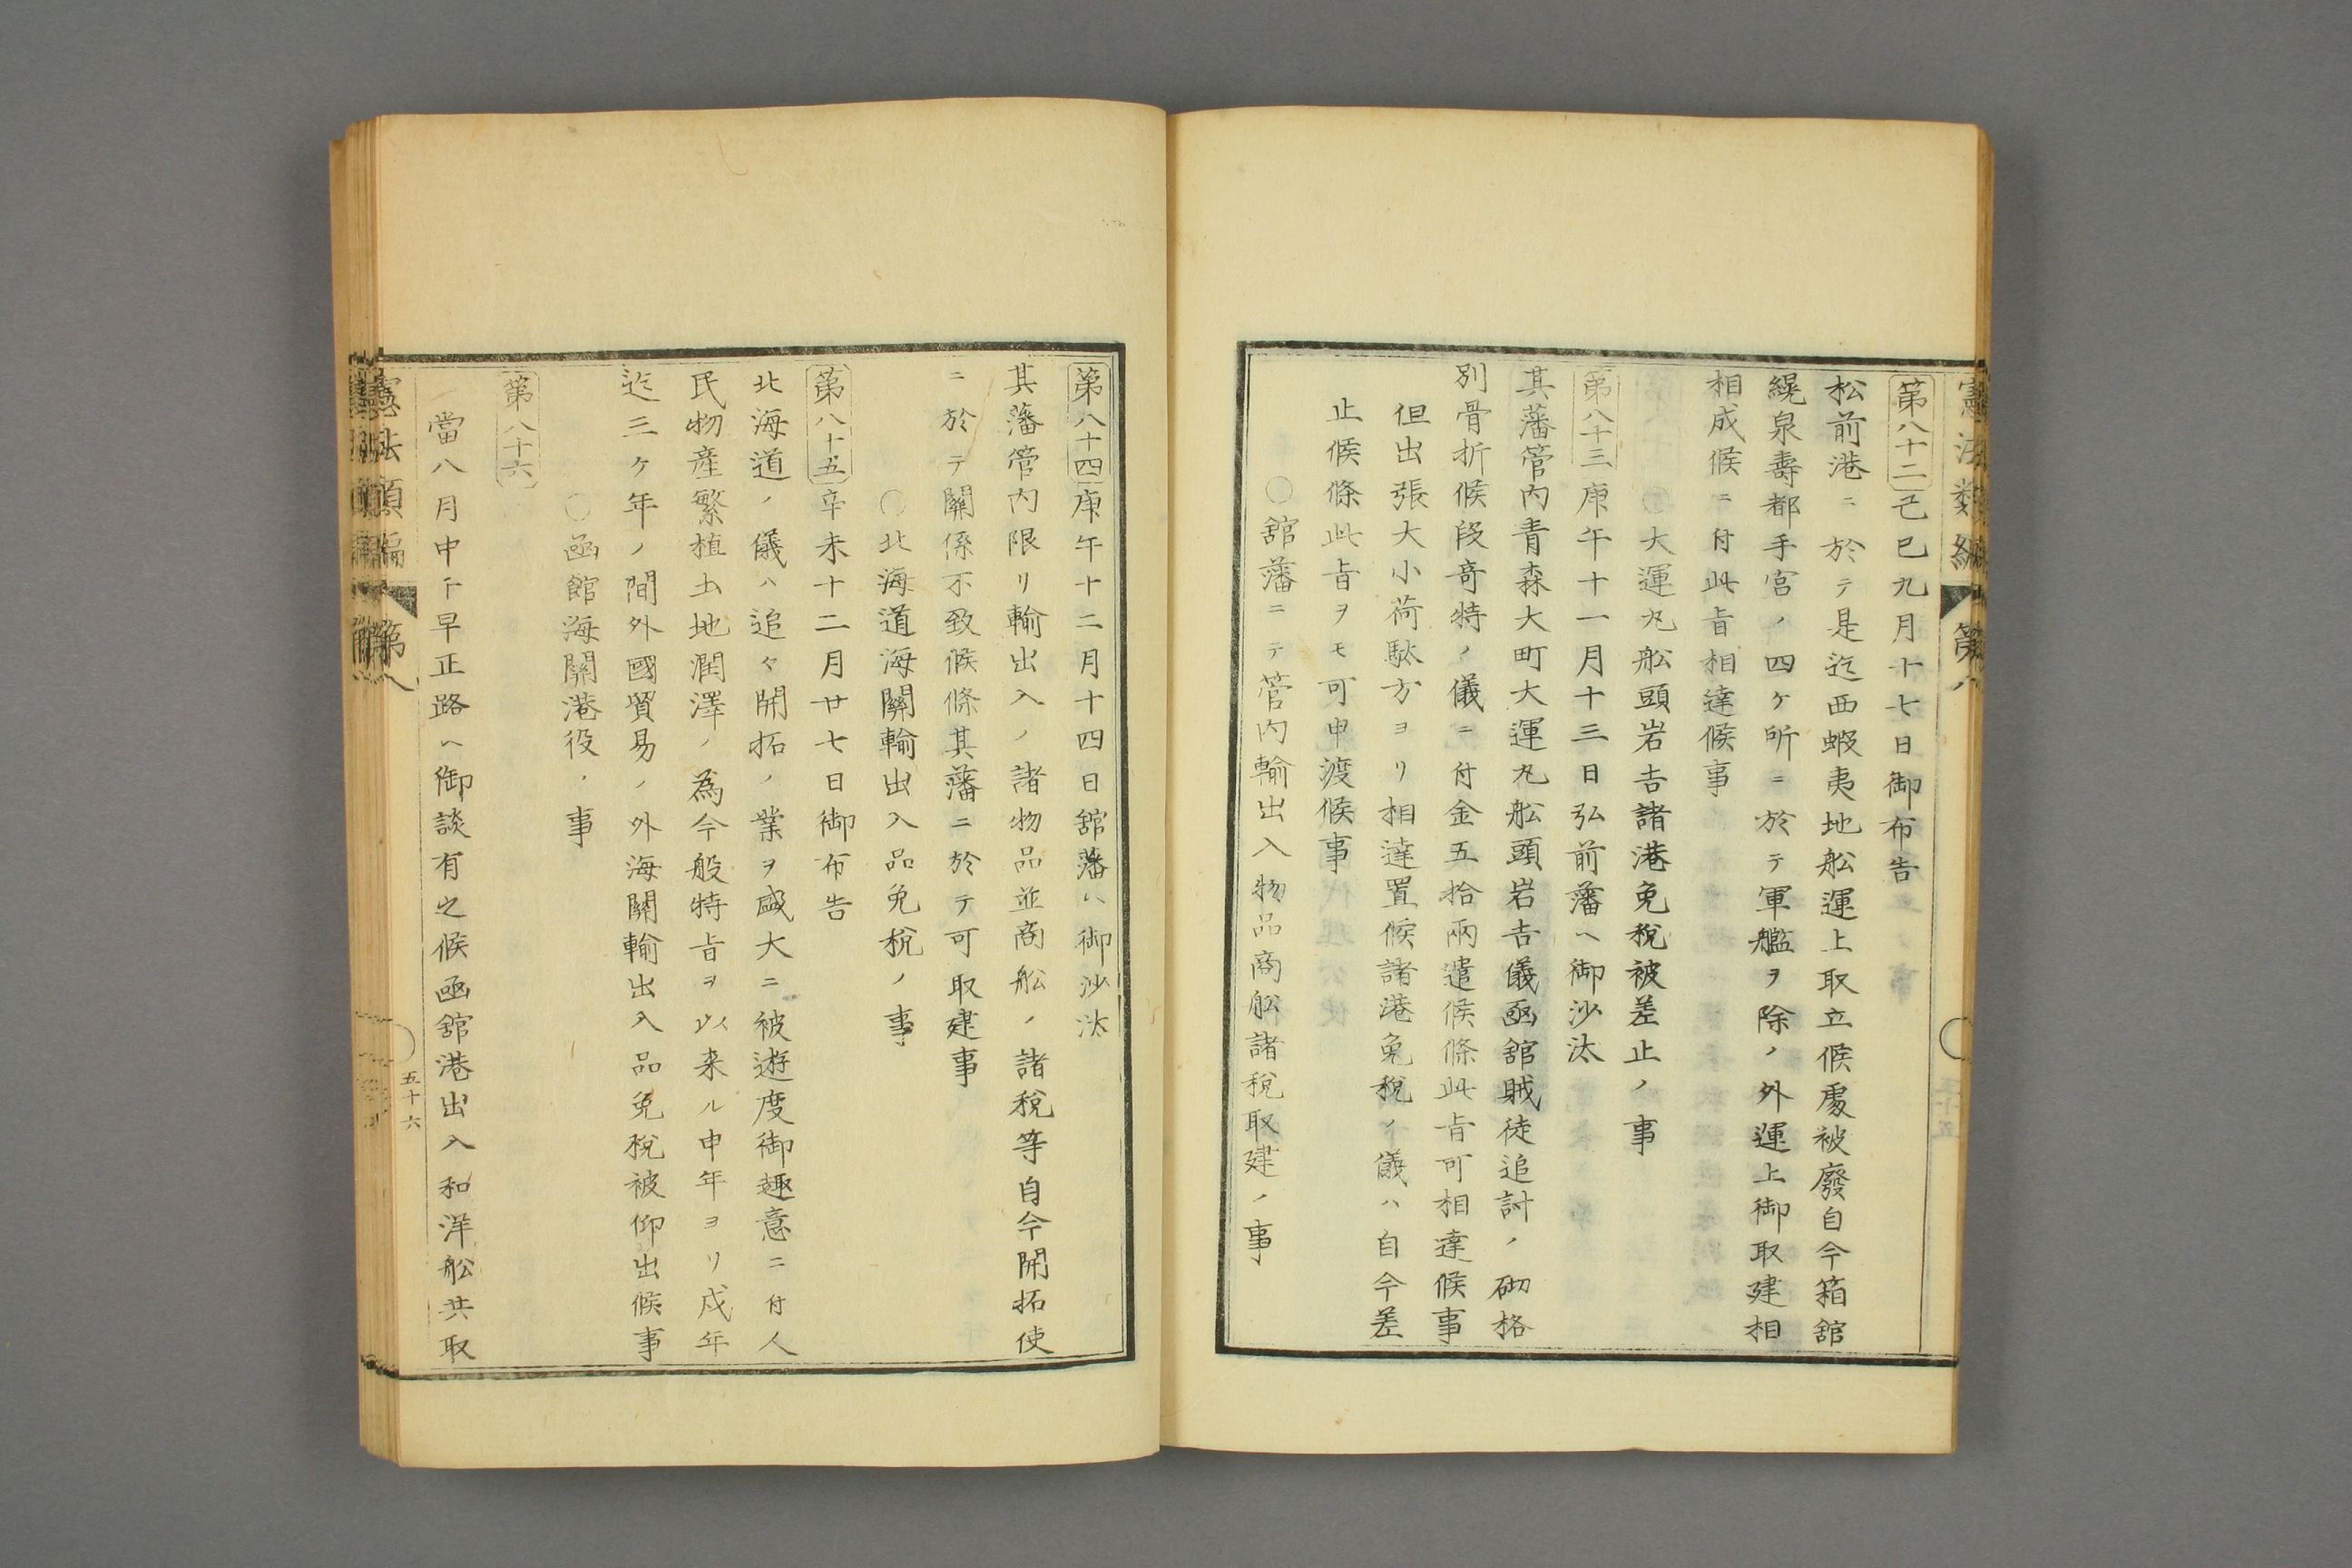 憲法類編 第八
第八十二 己巳九月十七日御布告
松前港ニ於テ是迄西蝦夷地舩運上取立候處被廢自今箱舘
縨泉壽都手宮ノ四ケ所ニ於テ軍艦ヲ除ノ外運上御取建相
相成候ニ付此旨相達候事
○大運丸舩頭岩吉諸港免稅被差止ノ事
第八十三 庚午十一月十三日弘前藩ヘ御沙汰
其藩管内青森大町大運丸舩頭岩吉儀凾舘賊徒追討ノ砌格
別骨折候段奇特ノ儀ニ付金五拾兩遣候條此旨可相達候事
但出張大小荷駄方ヨリ相達置候諸港免稅ノ儀ハ自今差
止候條此旨ヲモ可申渡候事
○舘藩ニテ管内輸出入物品商舩諸稅取建ノ事
第八十四 庚午十二月十四日舘藩ヘ御沙汰
其藩管内限リ輸出入ノ諸物品並商舩ノ諸稅等自今開拓使
ニ於テ關係不致候條其藩ニ於テ可取建事
○北海道海關輸出入品免稅ノ事
第八十五 辛未十二月廿七日御布告
北海道ノ儀ハ追々開拓ノ業ヲ盛大ニ被遊度御趣意ニ付人
民物產繁植土地潤澤ノ為今般特旨ヲ以来ル申年ヨリ戌年
迄三ケ年ノ間外國貿易ノ外海關輸出入品免稅被仰出候事
○凾館海關港役ノ事
第八十六
當八月中ヿ早正路ヘ御談有之候凾舘港出入和洋舩共取
憲法類編 第八
五十六